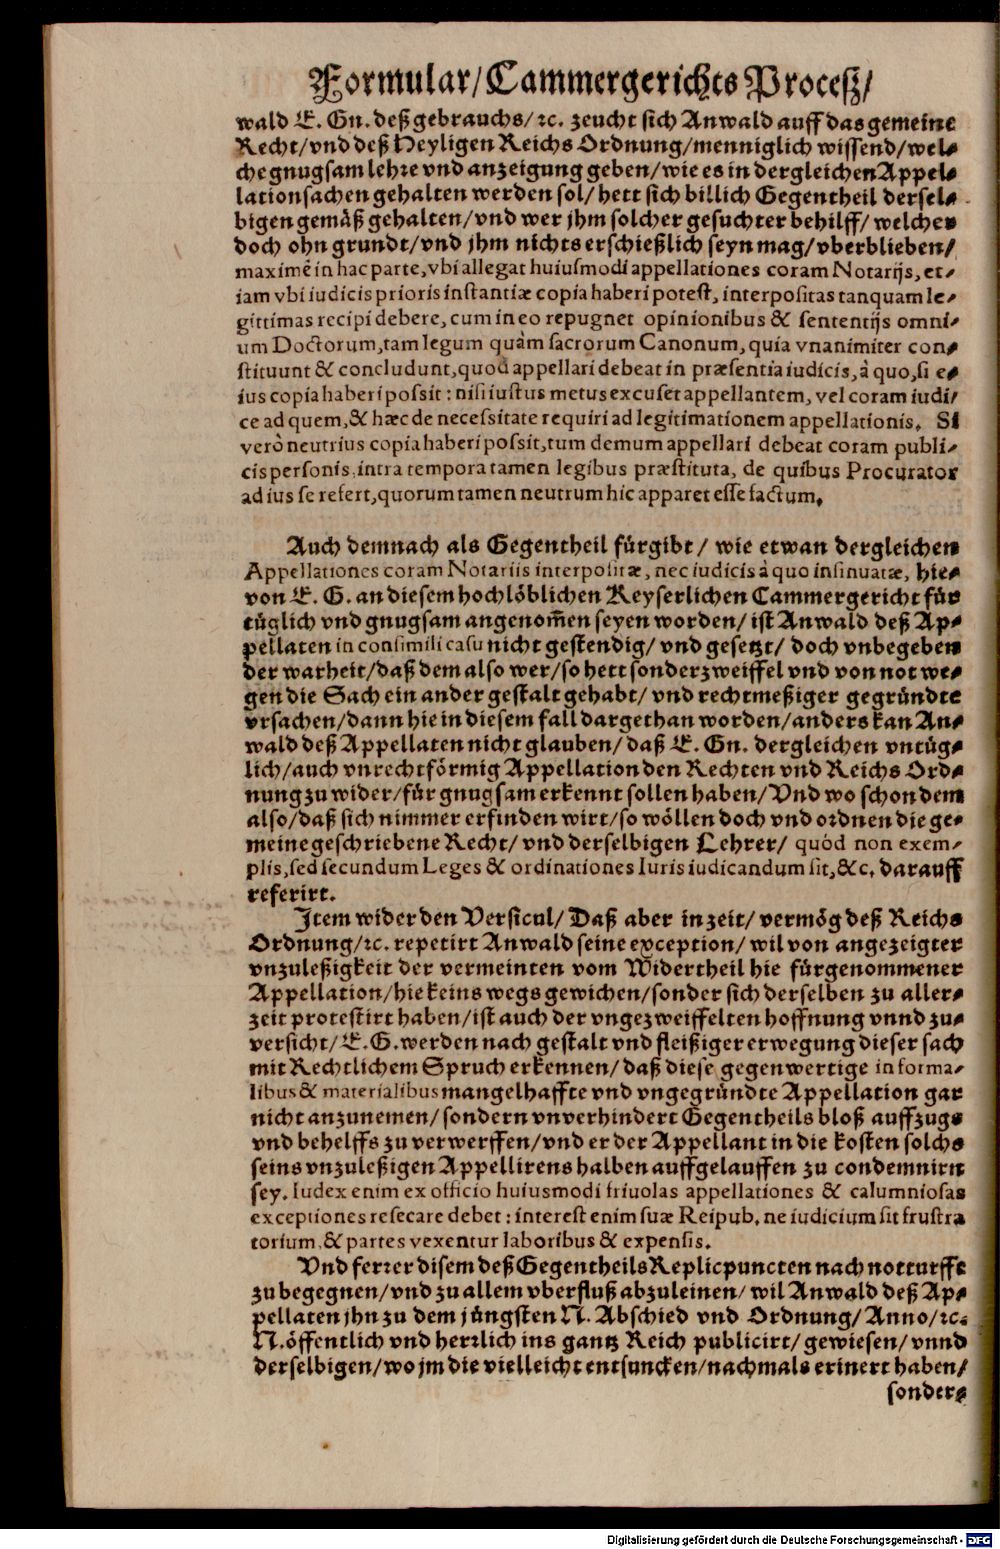 Formular/Cammergerichts Proceß/
wald E. Gn. deß gebrauchs/ ꝛc. zeucht sich Anwald auff das gemeine
Recht/vnd deß Heyligen Reichs Ordnung/menniglich wissend/wel⸗
che gnugsam lehre vnd anzeigung geben/wie es in dergleichen Appel⸗
lationsachen gehalten werden sol/ hett sich billich Gegentheil dersel⸗
bigen gemäß gehalten/vnd wer jhm solcher gesuchter behilff/ welcher
doch ohn grundt/vnd jhm nichts erschießlich seyn mag/vberblieben/
maximè in hac parte, vbi allegat huiusmodi appellationes coram Notarijs, et⸗
iam vbi iudicis prioris instantiæ copia haberi potest, interpositas tanquam le⸗
gittimas recipi debere, cum in eo repugnet opinionibus & sententijs omni⸗
um Doctorum, tam legum quàm sacrorum Canonum, quia vnanimiter con⸗
stituunt & concludunt, quod appellari debeat in præsentia iudicis, à quo, si e⸗
ius copia haberi possit : nisi iustus metus excuset appellantem, vel coram iudi⸗
ce ad quem, & hæc de necessitate requiri ad legitimationem appellationis. Si
verò neutrius copia haberi possit, tum demum appellari debeat coram publi⸗
cis personis, intra tempora tamen legibus præstituta, de quibus Procurator
ad ius se refert, quorum tamen neutrum hic apparet esse factum.
Auch demnach als Gegentheil fürgibt/ wie etwan dergleichen
Appellationes coram Notariis interpositæ, nec iudicis à quo insinuatæ, hie⸗
von E. G. an diesem hochlöblichen Keyserlichen Cammergericht für
tüglich vnd gnugsam angenom̃en seyen worden/ ist Anwald deß Ap⸗
pellaten in consimili casu nicht gestendig/ vnd gesetzt/ doch vnbegeben
der warheit/daß dem also wer/so hett sonder zweiffel vnd von not we⸗
gen die Sach ein ander gestalt gehabt/ vnd rechtmeßiger gegründte
vrsachen/dann hie in diesem fall dargethan worden/anders kan An⸗
wald deß Appellaten nicht glauben/ daß E. Gn. dergleichen vntüg⸗
lich/auch vnrechtförmig Appellation den Rechten vnd Reichs Ord⸗
nung zu wider/für gnugsam erkennt sollen haben/Vnd wo schon dem
also/daß sich nimmer erfinden wirt/so wöllen doch vnd ordnen die ge⸗
meine geschriebene Recht/ vnd derselbigen Lehrer/ quòd non exem⸗
plis, sed secundum Leges & ordinationes Iuris iudicandum sit, &c. darauff
referirt.
Item wider den Versicul/ Daß aber in zeit/ vermög deß Reichs
Ordnung/ꝛc. repetirt Anwald seine exception/ wil von angezeigter
vnzuleßigkeit der vermeinten vom Widertheil hie fürgenommener
Appellation/hie keins wegs gewichen/sonder sich derselben zu aller⸗
zeit protestirt haben/ist auch der vngezweiffelten hoffnung vnnd zu⸗
versicht/ E. G. werden nach gestalt vnd fleißiger erwegung dieser sach
mit Rechtlichem Spruch erkennen/ daß diese gegenwertige in forma⸗
libus & materialibus mangelhaffte vnd vngegründte Appellation gar
nicht anzunemen/ sondern vnverhindert Gegentheils bloß auffzugs
vnd behelffs zu verwerffen/vnd er der Appellant in die kosten solchs
seins vnzuleßigen Appellirens halben auffgelauffen zu condemnirn
sey. Iudex enim ex officio huiusmodi friuolas appellationes & calumniosas
exceptiones resecare debet : interest enim suæ Reipub. ne iudicium sit frustra
torium, & partes vexentur laboribus & expensis.
Vnd ferrer disem deß Gegentheils Replicpuncten nach notturfft
zu begegnen/vnd zu allem vberfluß abzuleinen/ wil Anwald deß Ap⸗
pellaten jhn zu dem jüngsten N. Abschied vnd Ordnung/ Anno/ꝛc.
N. öffentlich vnd herrlich ins gantz Reich publicirt/ gewiesen/ vnnd
derselbigen/wo jm die vielleicht entsuncken/nachmals erinert haben/
sonder⸗
Digitalisierung gefördert durch die Deutsche Forschungsgemeinschaft - DFG